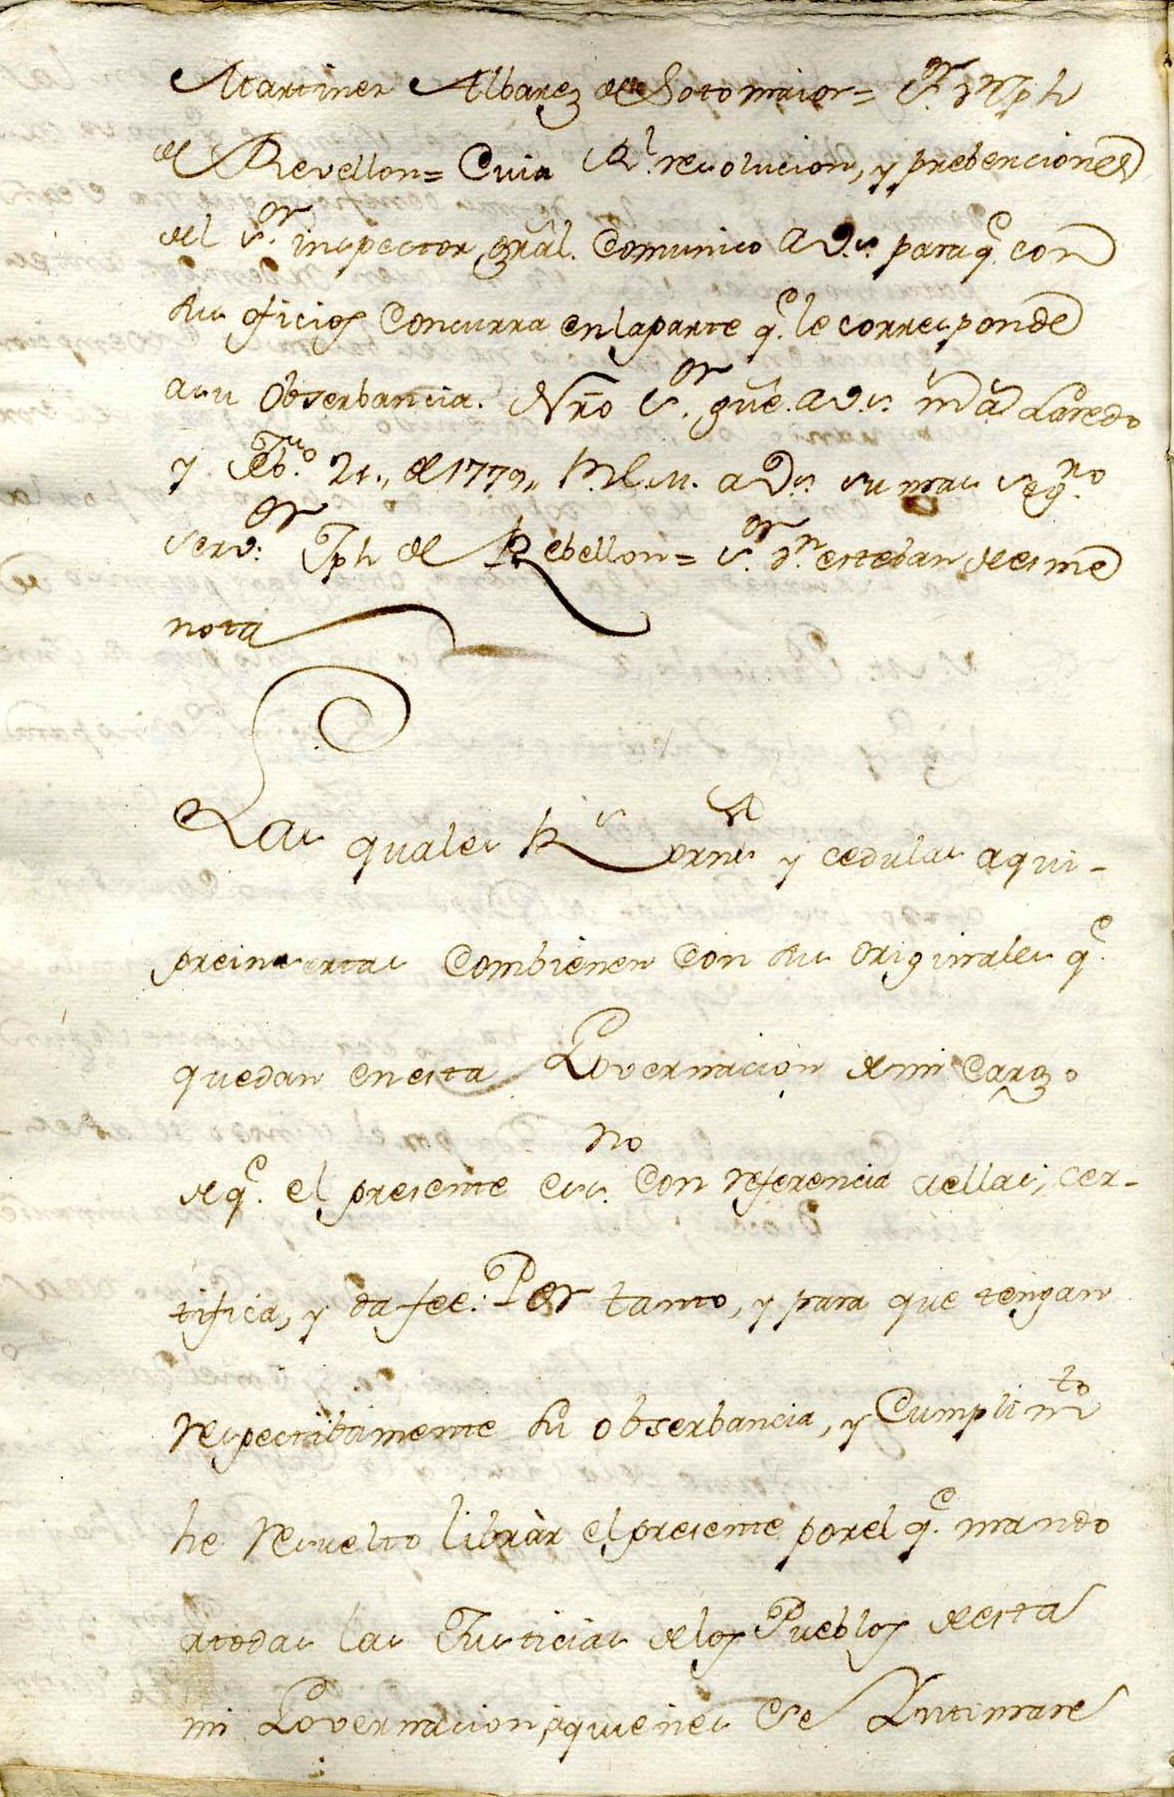 Martinez Albarez de Sotomaior = S.or Dn Jph
de Revellon = Cuia Rl. resolucion, y prebenciones
del S.or inspector, grâl. Comunico a V.s. para q.e con
sus oficios Concurra en la parte q.e le corresponde
a su Obserbancia. Nrõ S.or gûe. a V.s. m.s a.s Laredo
y Feb.ro 21., de 1779,, B.l.m. a V.s. su mas seg.ro
serv.or Jph de Rebellon = S.or Dn. esteban de esme
nota
Las quales R.s orns y cedulas aqui-
preinsertas Combienen Con sus originales q.e
quedan en esta Governacion de mi Cargo
de q.e el presente es.no Con referencia a ellas, cer-
tifica, y da fee: Por tanto, y para que tengan
respectibamente su obserbancia, y Cumplim.to
he resuelto libràr el presente por el q.e mando
a todas las Justicias de los Pueblos de esta
mi Governacion, a quienes Se Yntimare